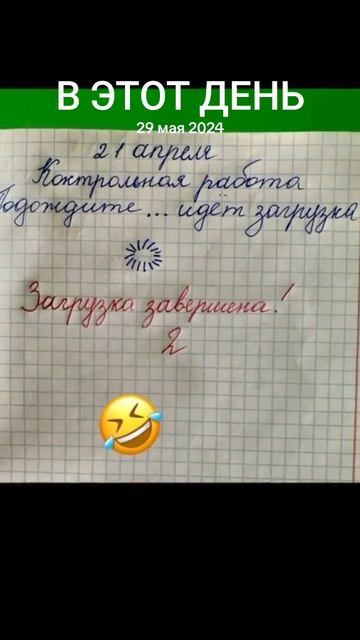 В ЭТОТ ДЕНЬ
29 мая 2024
21 апреля
Контрольная работа
Подождите... идёт загрузка
Загрузка завершена!
2